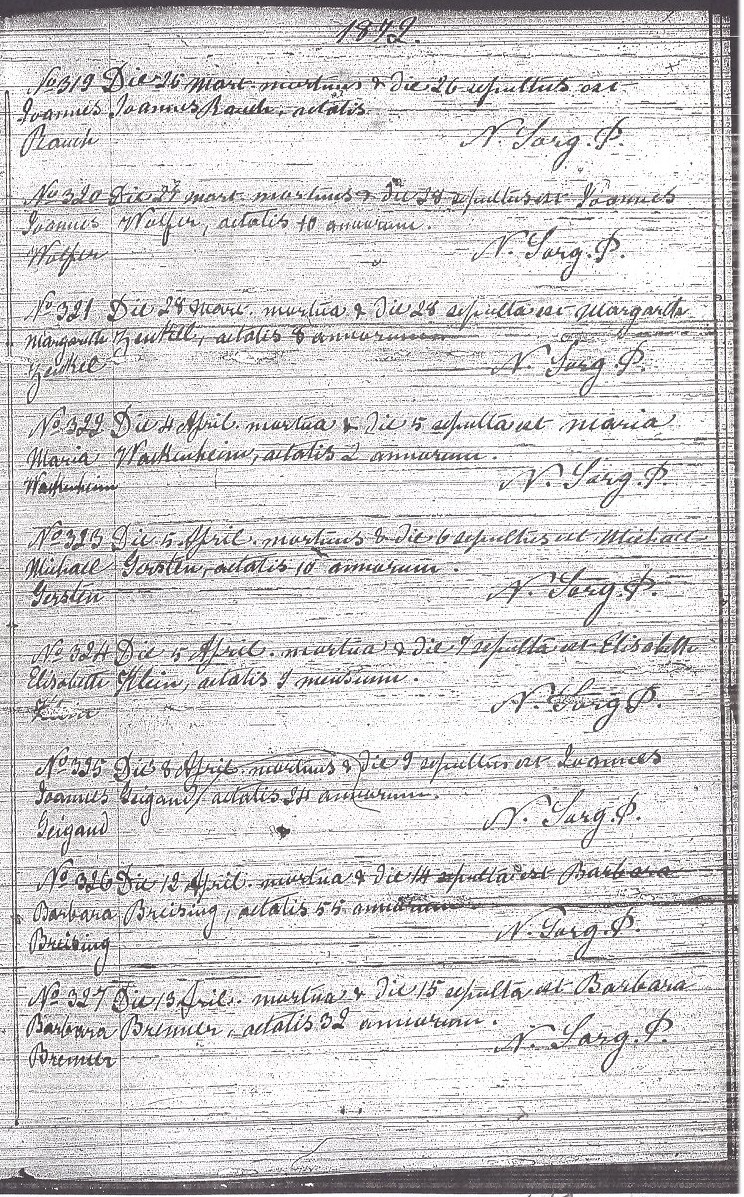 1872.
No 319 Die 25 Mart. mortuus & die 26 sepultus est
Joannes Joannes Rauch, aetatis
Rauch N. Sorg. P.
No 320 Die 27 mart. mortuus & die 28 sepultus est Joannes
Joannes Wolfer, aetatis 10 annorum.
Wolfer N. Sorg. P.
No 321 Die 28 Mart. mortua & die 28 sepulta est Margaretha
Margaretha Zenkel, aetatis 8 annorum
Zenkel N. Sorg. P.
No 322 Die 4 April. mortua & die 5 sepulta est Maria
Maria Wackenheim, aetatis 2 annorum.
Wackenheim N. Sorg. P.
No 323 Die 5 April. mortuus & die 6 sepultus est Michael
Michael Gersten, aetatis 10 annorum.
Gersten N. Sorg. P.
No 324 Die 5 April. mortua & die 7 sepulta est Elisabetha
Elisabetha Klein, aetatis 9 mensium.
Klein N. Sorg P.
No 325 Die 8 April. mortuus & die 9 sepultus est Joannes
Joannes Geigand, aetatis 24 annorum.
Geigand N. Sorg. P.
No 326 Die 12 April. mortua & die 14 sepulta est Barbara
Barbara Breising, aetatis 55 annorum
Breising N. Sorg. P.
No 327 Die 13 April. mortua & die 15 sepulta est Barbara
Barbara Bremer, aetatis 32 annorum.
Bremer N. Sorg. P.